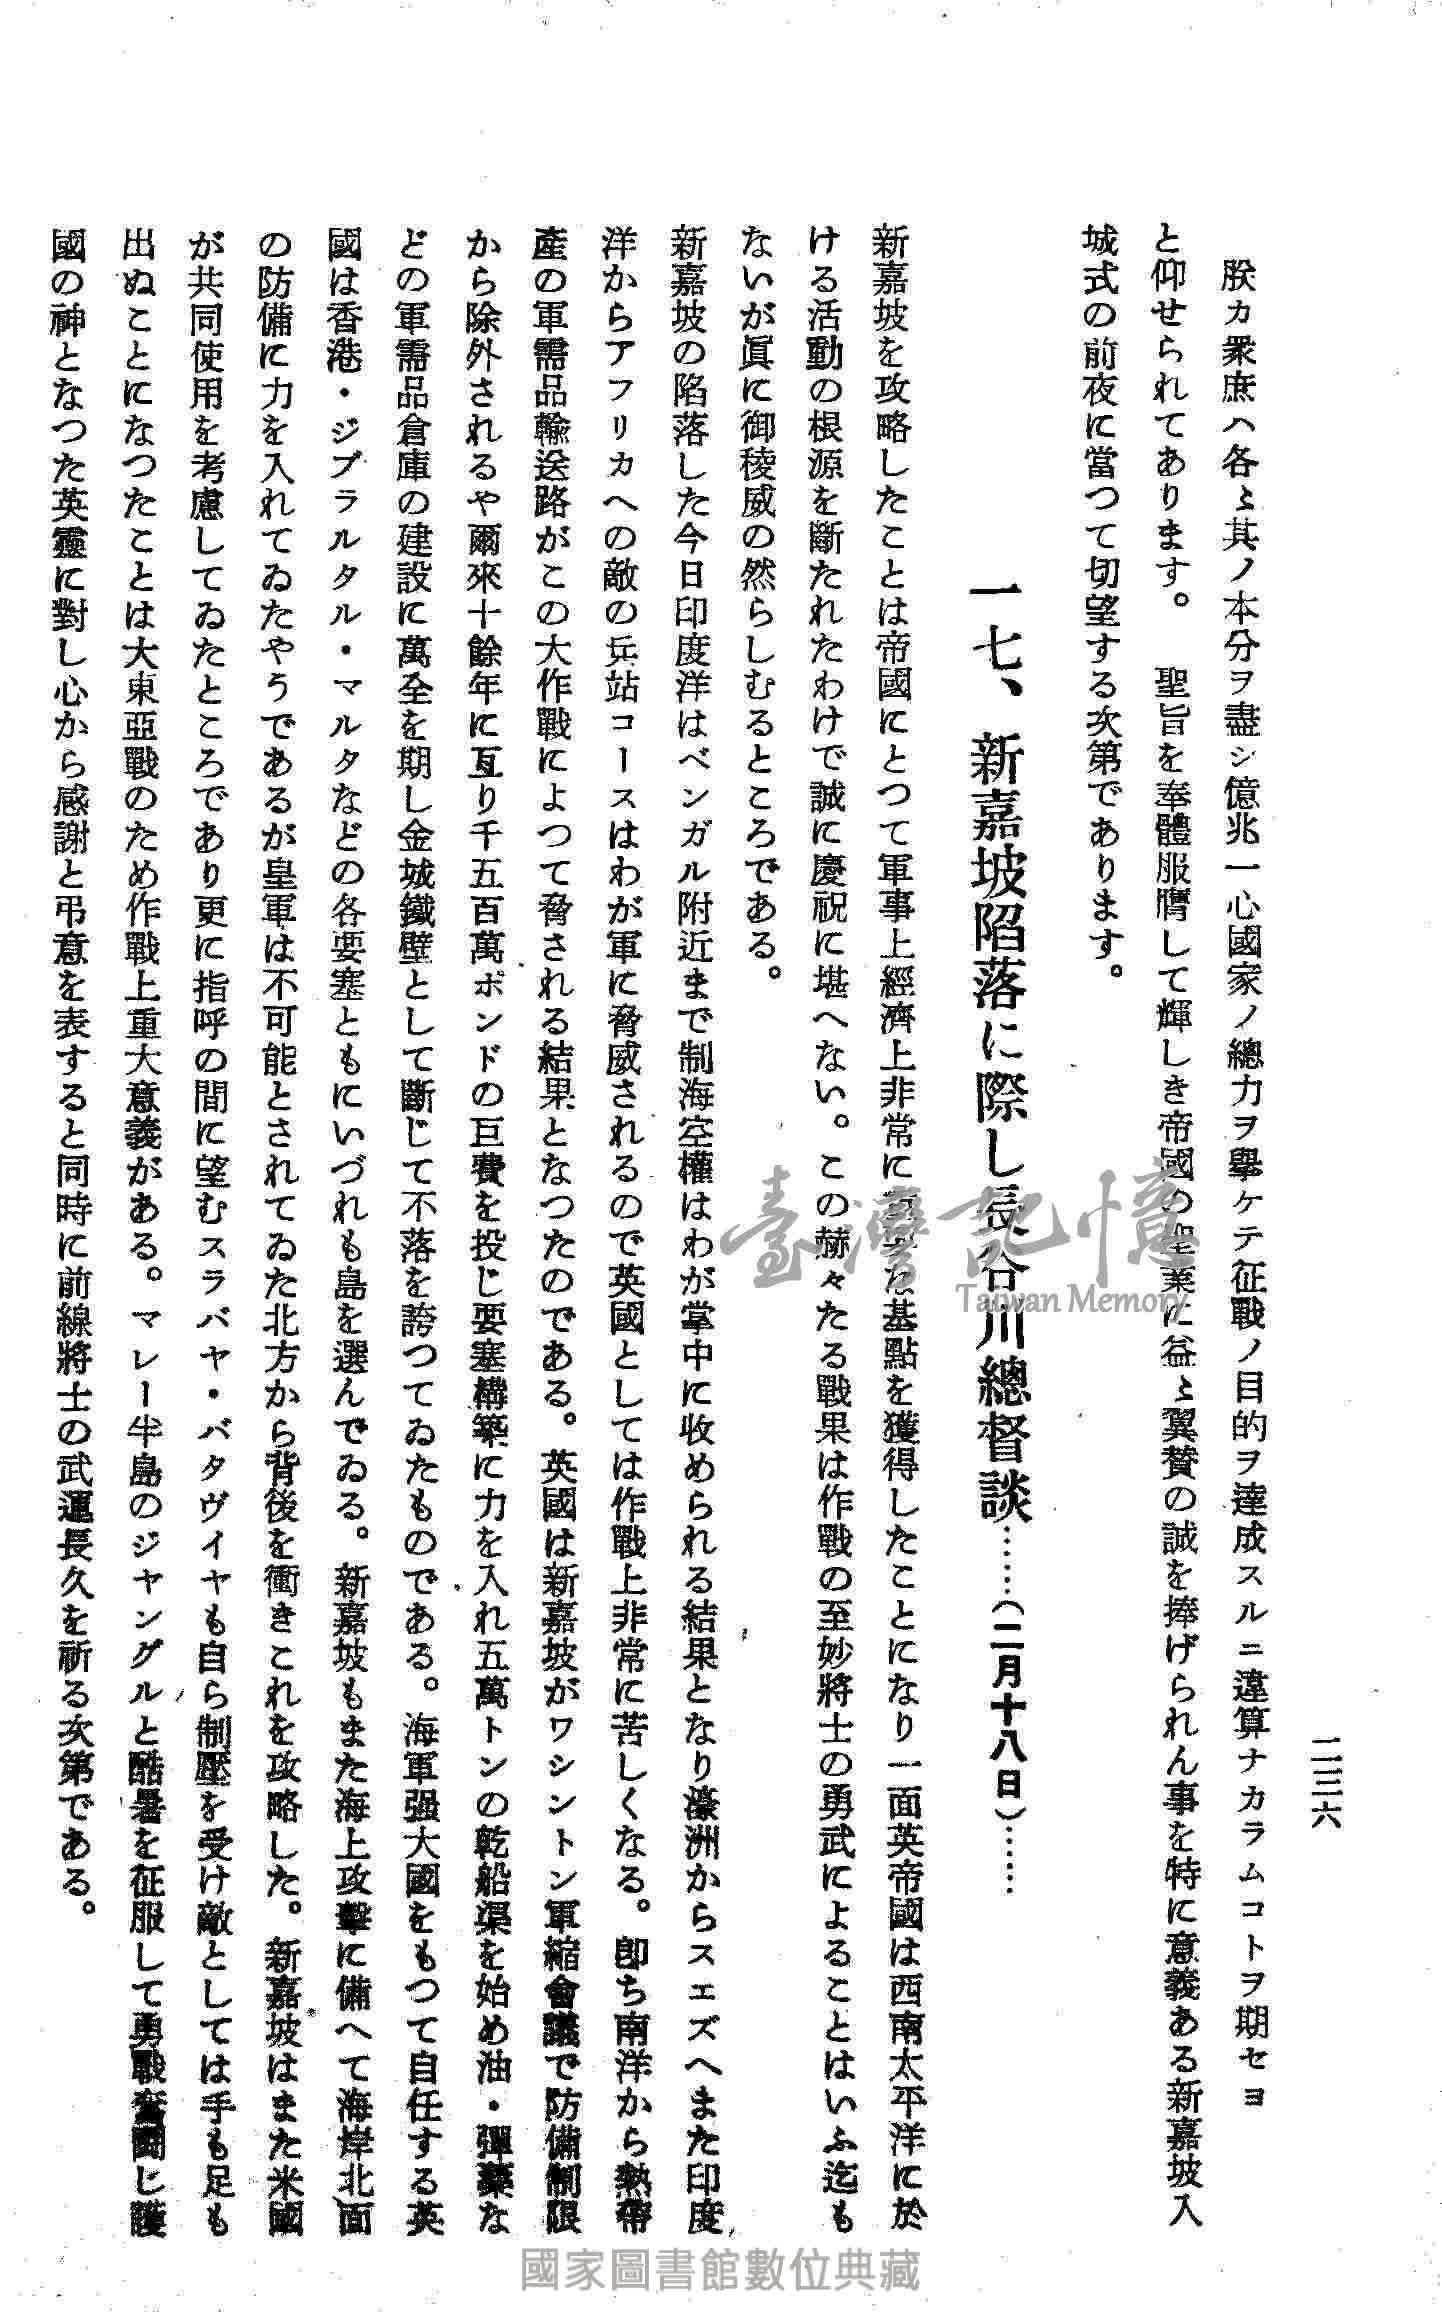 二三六
朕カ衆庶ハ各〻其ノ本分ヲ盡シ億兆一心國家ノ總力ヲ擧ケテ征戰ノ目的ヲ達成スルニ違算ナカラムコトヲ期セヨ
と仰せられてあります。　聖旨を奉體服膺して輝しき帝國の聖業に益〻翼賛の誠を捧げられん事を特に意義ある新嘉坡入
城式の前夜に當つて切望する次第であります。
一七、新嘉坡陷落に際し長谷川總督談……（二月十八日）……
新嘉坡を攻略したことは帝國にとつて軍事上經濟上非常に重要な基點を獲得したことになり一面英帝國は西南太平洋に於
ける活動の根源を斷たれたわけで誠に慶祝に堪へない。この赫々たる戰果は作戰の至妙將士の勇武によることはいふ迄も
ないが眞に御稜威の然らしむるところである。
新嘉坡の陷落した今日印度洋はベンガル附近まで制海空權はわが掌中に收められる結果となり濠洲からスエズへまた印度
洋からアフリカへの敵の兵站コースはわが軍に脅威されるので英國としては作戰上非常に苦しくなる。卽ち南洋から熱帶
產の軍需品輸送路がこの大作戰によつて脅される結果となつたのである。英國は新嘉坡がワシントン軍縮會議で防備制限
から除外されるや爾來十餘年に亙り千五百萬ポンドの巨費を投じ要塞構築に力を入れ五萬トンの乾船渠を始め油・彈藥な
どの軍需品倉庫の建設に萬全を期し金城鐵壁として斷じて不落を誇つてゐたものである。海軍强大國をもつて自任する英
國は香港・ジブラルタル・マルタなどの各要塞ともにいづれも島を選んでゐる。新嘉坡もまた海上攻擊に備へて海岸北面
の防備に力を入れてゐたやうであるが皇軍は不可能とされてゐた北方から背後を衝きこれを攻略した。新嘉坡はまた米國
が共同使用を考慮してゐたところであり更に指呼の間に望むスラバヤ・バタヴイヤも自ら制壓を受け敵としては手も足も
出ぬことになつたことは大東亞戰のため作戰上重大意義がある。マレー半島のジヤングルと酷暑を征服して勇戰奮鬪し護
國の神となつた英靈に對し心から感謝と弔意を表すると同時に前線將士の武運長久を祈る次第である。
臺灣記憶
Taiwan Memory
國家圖書館數位典藏